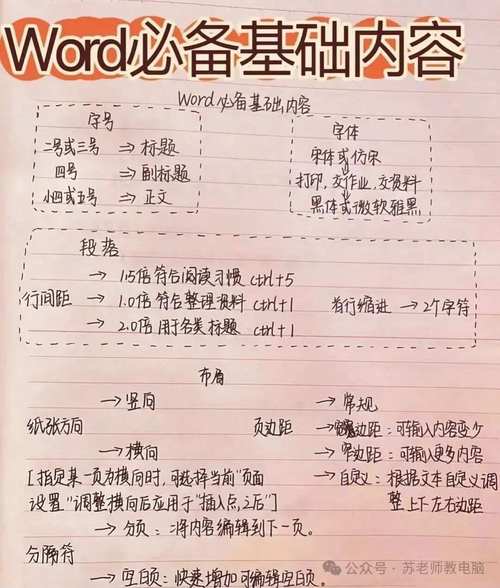 Word必备基础内容
Word必备基础内容
字号
二号或三号 ⇒ 标题
四号 ⇒ 副标题
小四或五号 ⇒ 正文
字体
宋体或仿宋
打印,交作业,交资料
黑体或微软雅黑
段落
行间距
→ 1.5倍 符合阅读习惯 ctrl+5
→ 1.0倍 符合整理资料 ctrl+1
→ 2.0倍 用于各类标题 ctrl+1
首行缩进 → 2个字符
布局
纸张方向
→ 竖向
→ 横向
[指定某一页为横向时,可选择当前"页面
设置"调整横向后应用于"插入点之后"]
页边距
→ 常规
→ 边距:可输入内容变少
→ 窄边距:可输入更多内容
→ 自定义:根据文本自定义调
整上下左右边距
分隔符
→ 分页:将内容编辑到下一页。
→ 空白页:快速增加可编辑空白页。
公众号·苏老师教电脑